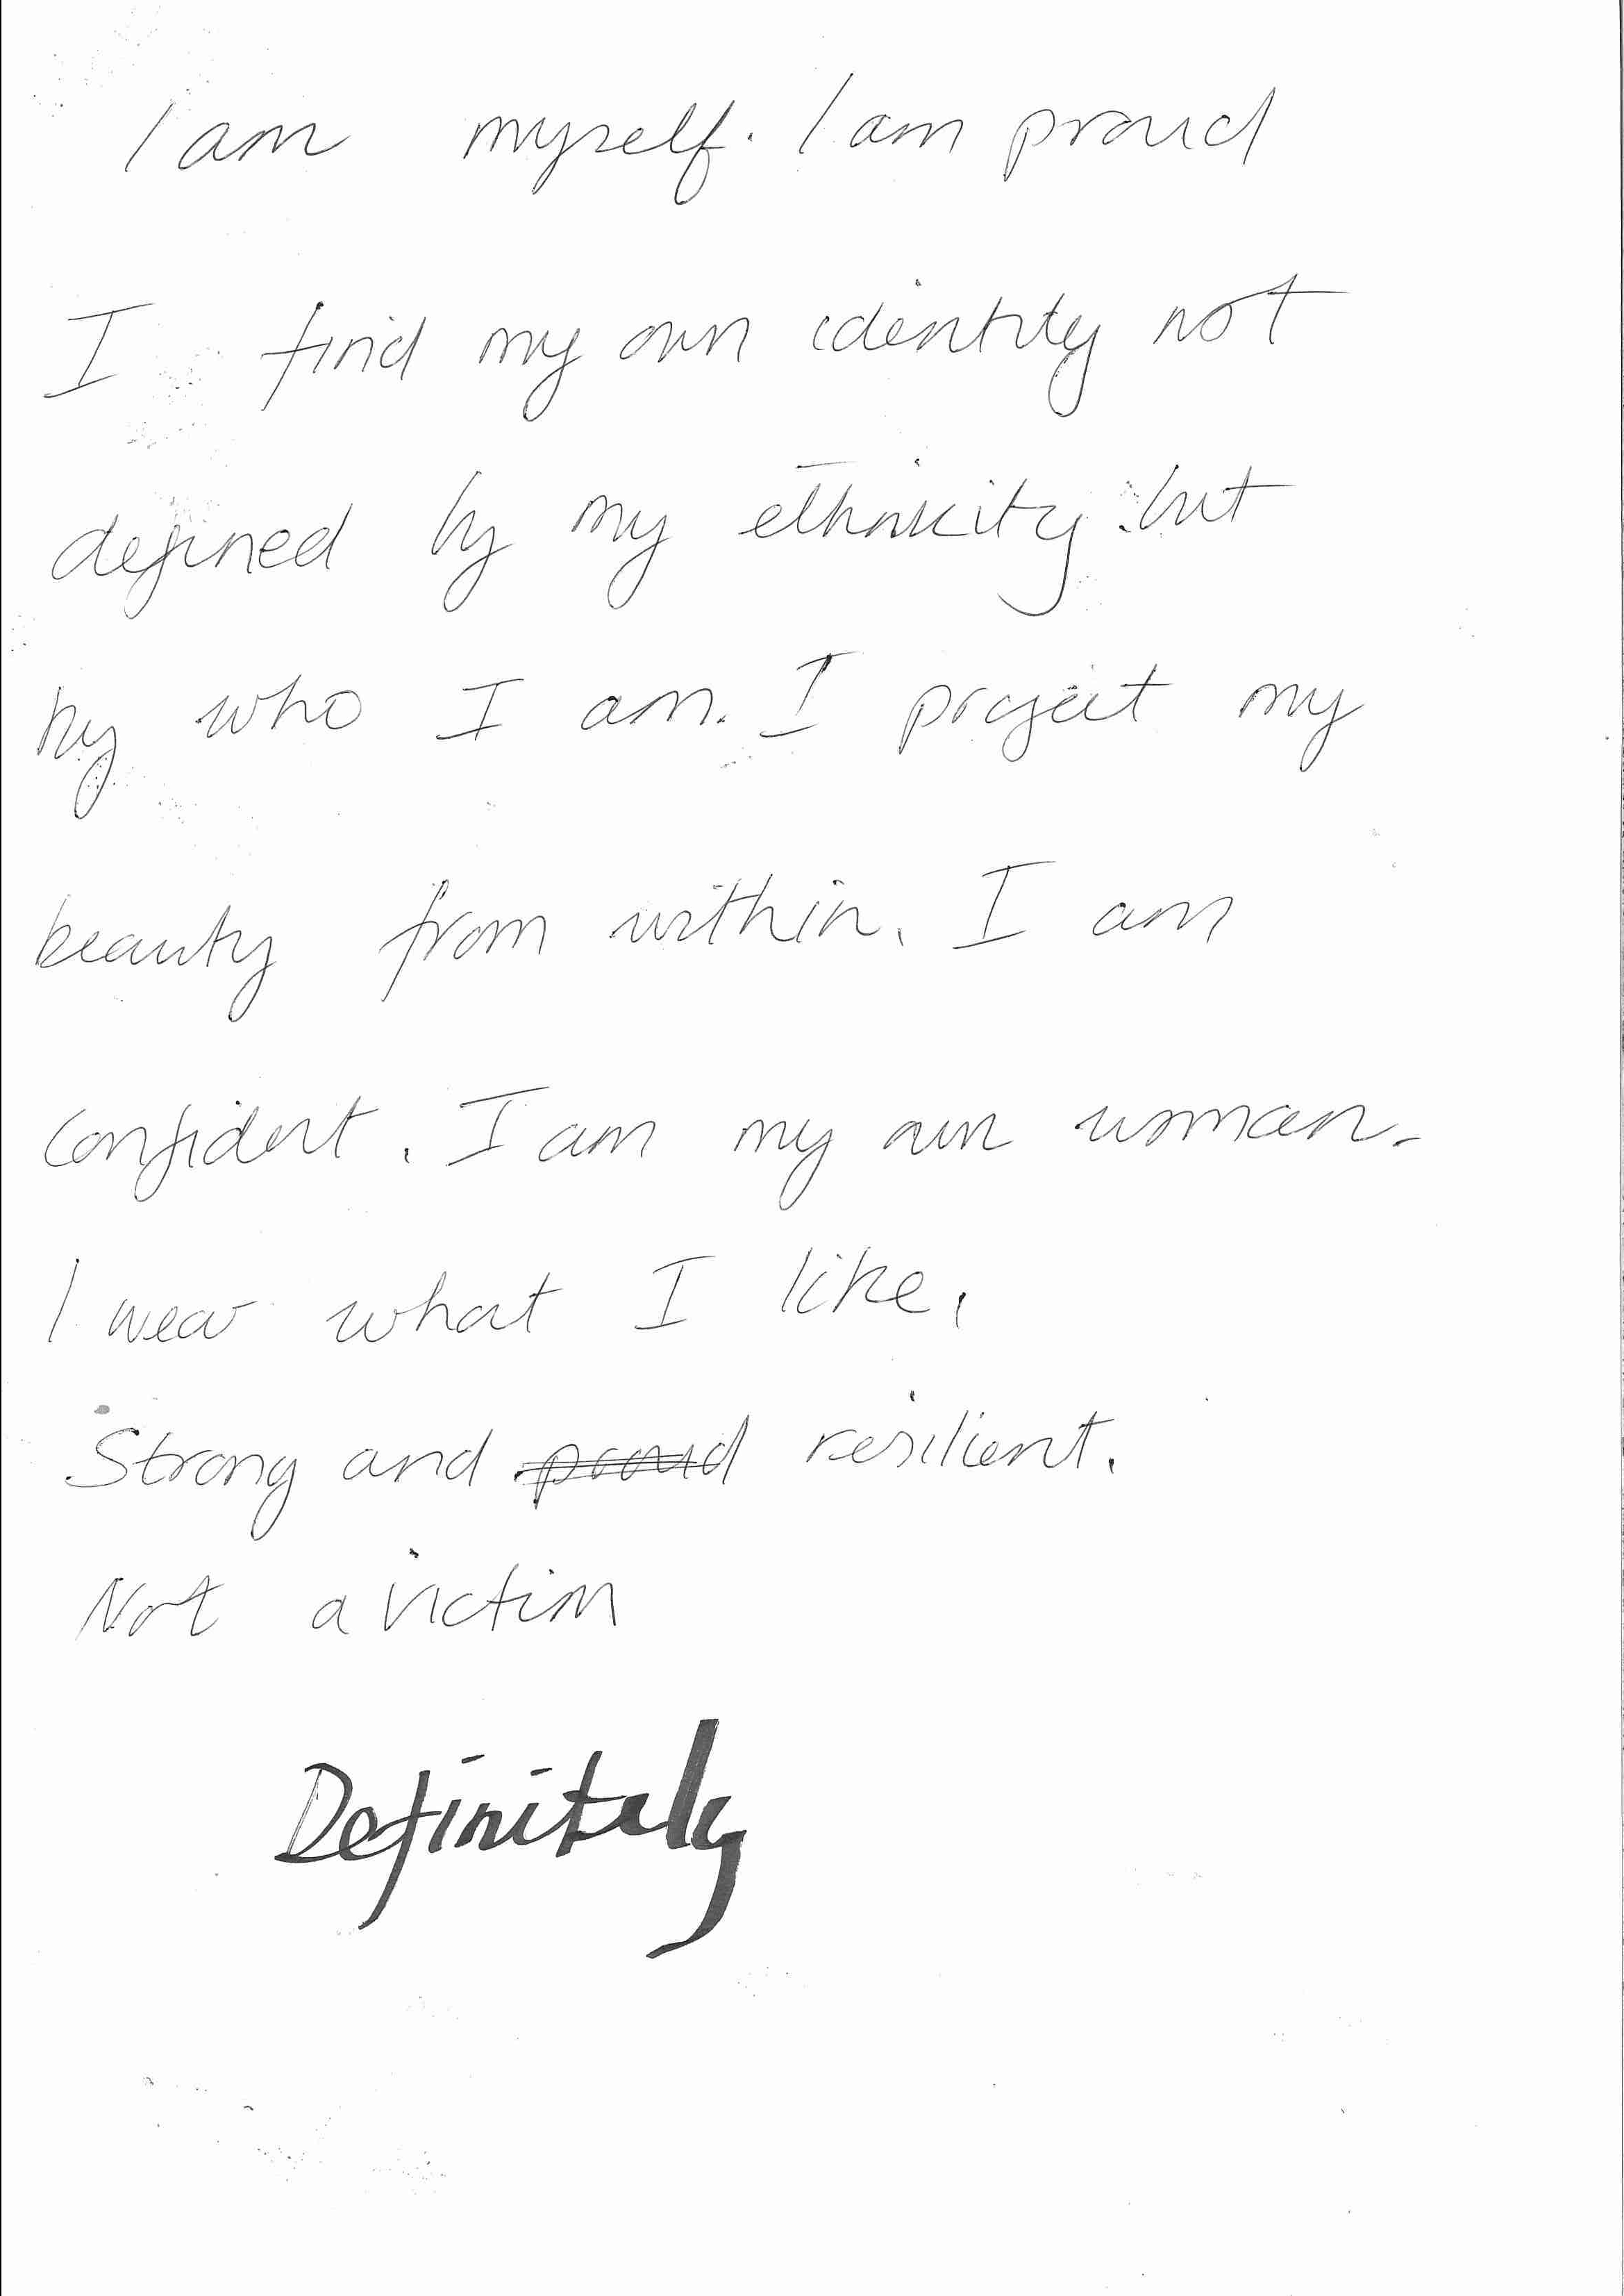 I am myself. I am proud
I find my own identity not
defined by my ethnicity but
by who I am. I project my
beauty from within. I am
confident. I am my own woman.
I wear what I like.
Strong and proud resilient.
Not a victim
Definitely